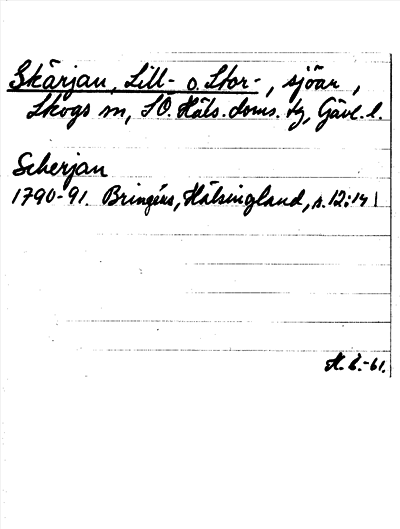 Skärjan, Lill- o. Stor-, sjöar,
Skogs sn, SÖ. Häls. doms. tg, Gävl. l.
Scherjan
1790-91. Bringéus, Hälsingland, s. 12:14
H. S.-61.